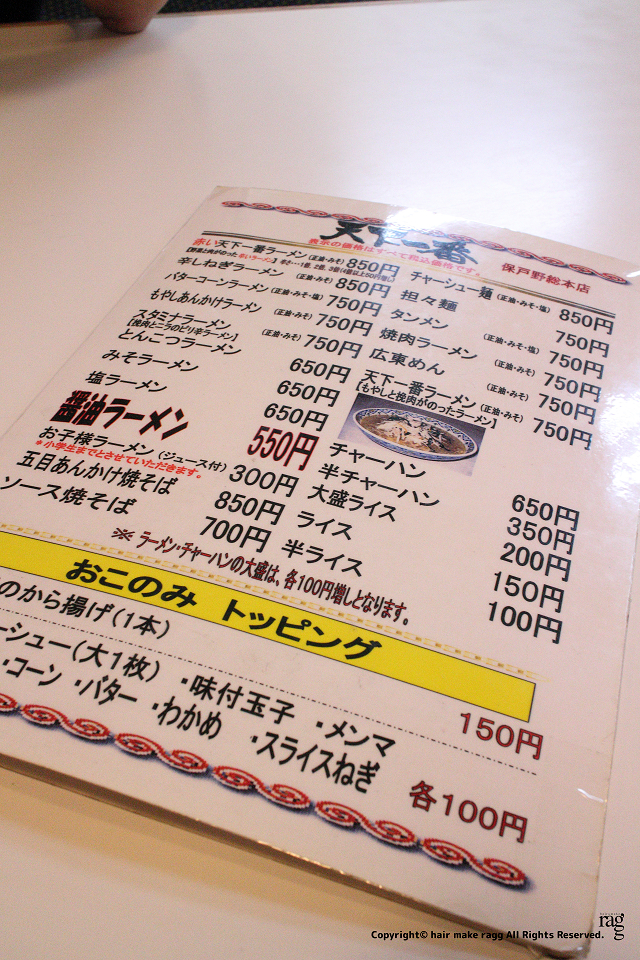 天下一番
表示の価格はすべて税込価格です。
保戸野総本店
赤い天下一番ラーメン(正油・みそ) 850円
辛しねぎラーメン(正油・みそ) 850円
バターコーンラーメン(正油・みそ・塩) 750円
もやしあんかけラーメン(正油・みそ) 750円
スタミナラーメン(正油・みそ) 750円
【挽肉とニラのピリ辛ラーメン】
とんこつラーメン 650円
みそラーメン 650円
塩ラーメン 650円
醤油ラーメン 550円
お子様ラーメン(ジュース付) 300円
*小学生までとさせていただきます。
五目あんかけ焼そば 850円
ソース焼そば 700円
チャーシュー麺(正油・みそ・塩) 850円
担々麺 750円
タンメン(正油・みそ・塩) 750円
焼肉ラーメン(正油・みそ) 750円
広東めん 750円
天下一番ラーメン(正油・みそ) 750円
【もやしと挽肉がのったラーメン】
チャーハン 650円
半チャーハン 350円
大盛ライス 200円
ライス 150円
半ライス 100円
※ラーメン・チャーハンの大盛は、各100円増しとなります。
おこのみ トッピング
のから揚げ(1本) 150円
ーシュー(大1枚) ・味付玉子 ・メンマ
・コーン ・バター ・わかめ ・スライスねぎ 各100円
ragg
Copyright© hair make ragg All Rights Reserved.